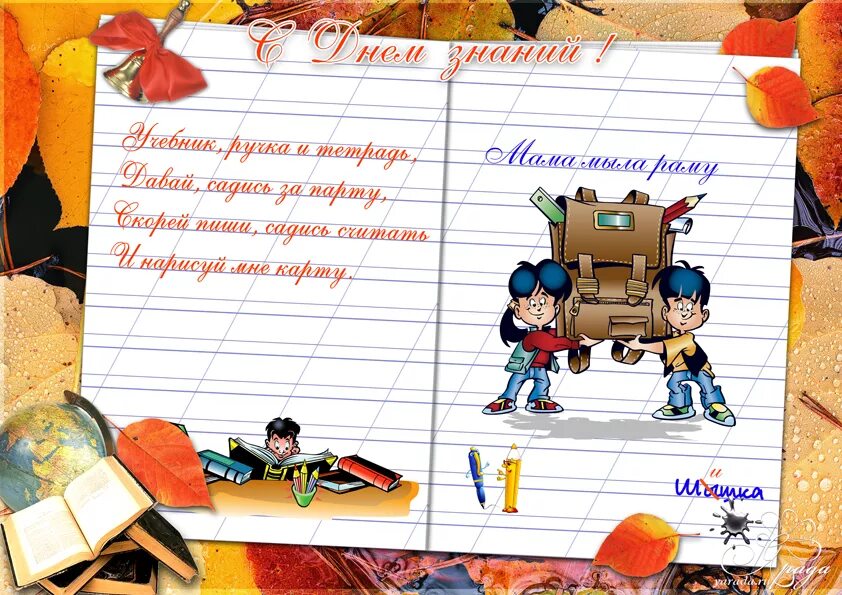 С Днем знаний !
Учебник, ручка и тетрадь,
Давай, садись за парту,
Скорей пиши, садись считать
И нарисуй мне карту.
Мама мыла раму
и
Шышка
yarada.ru
Ярада